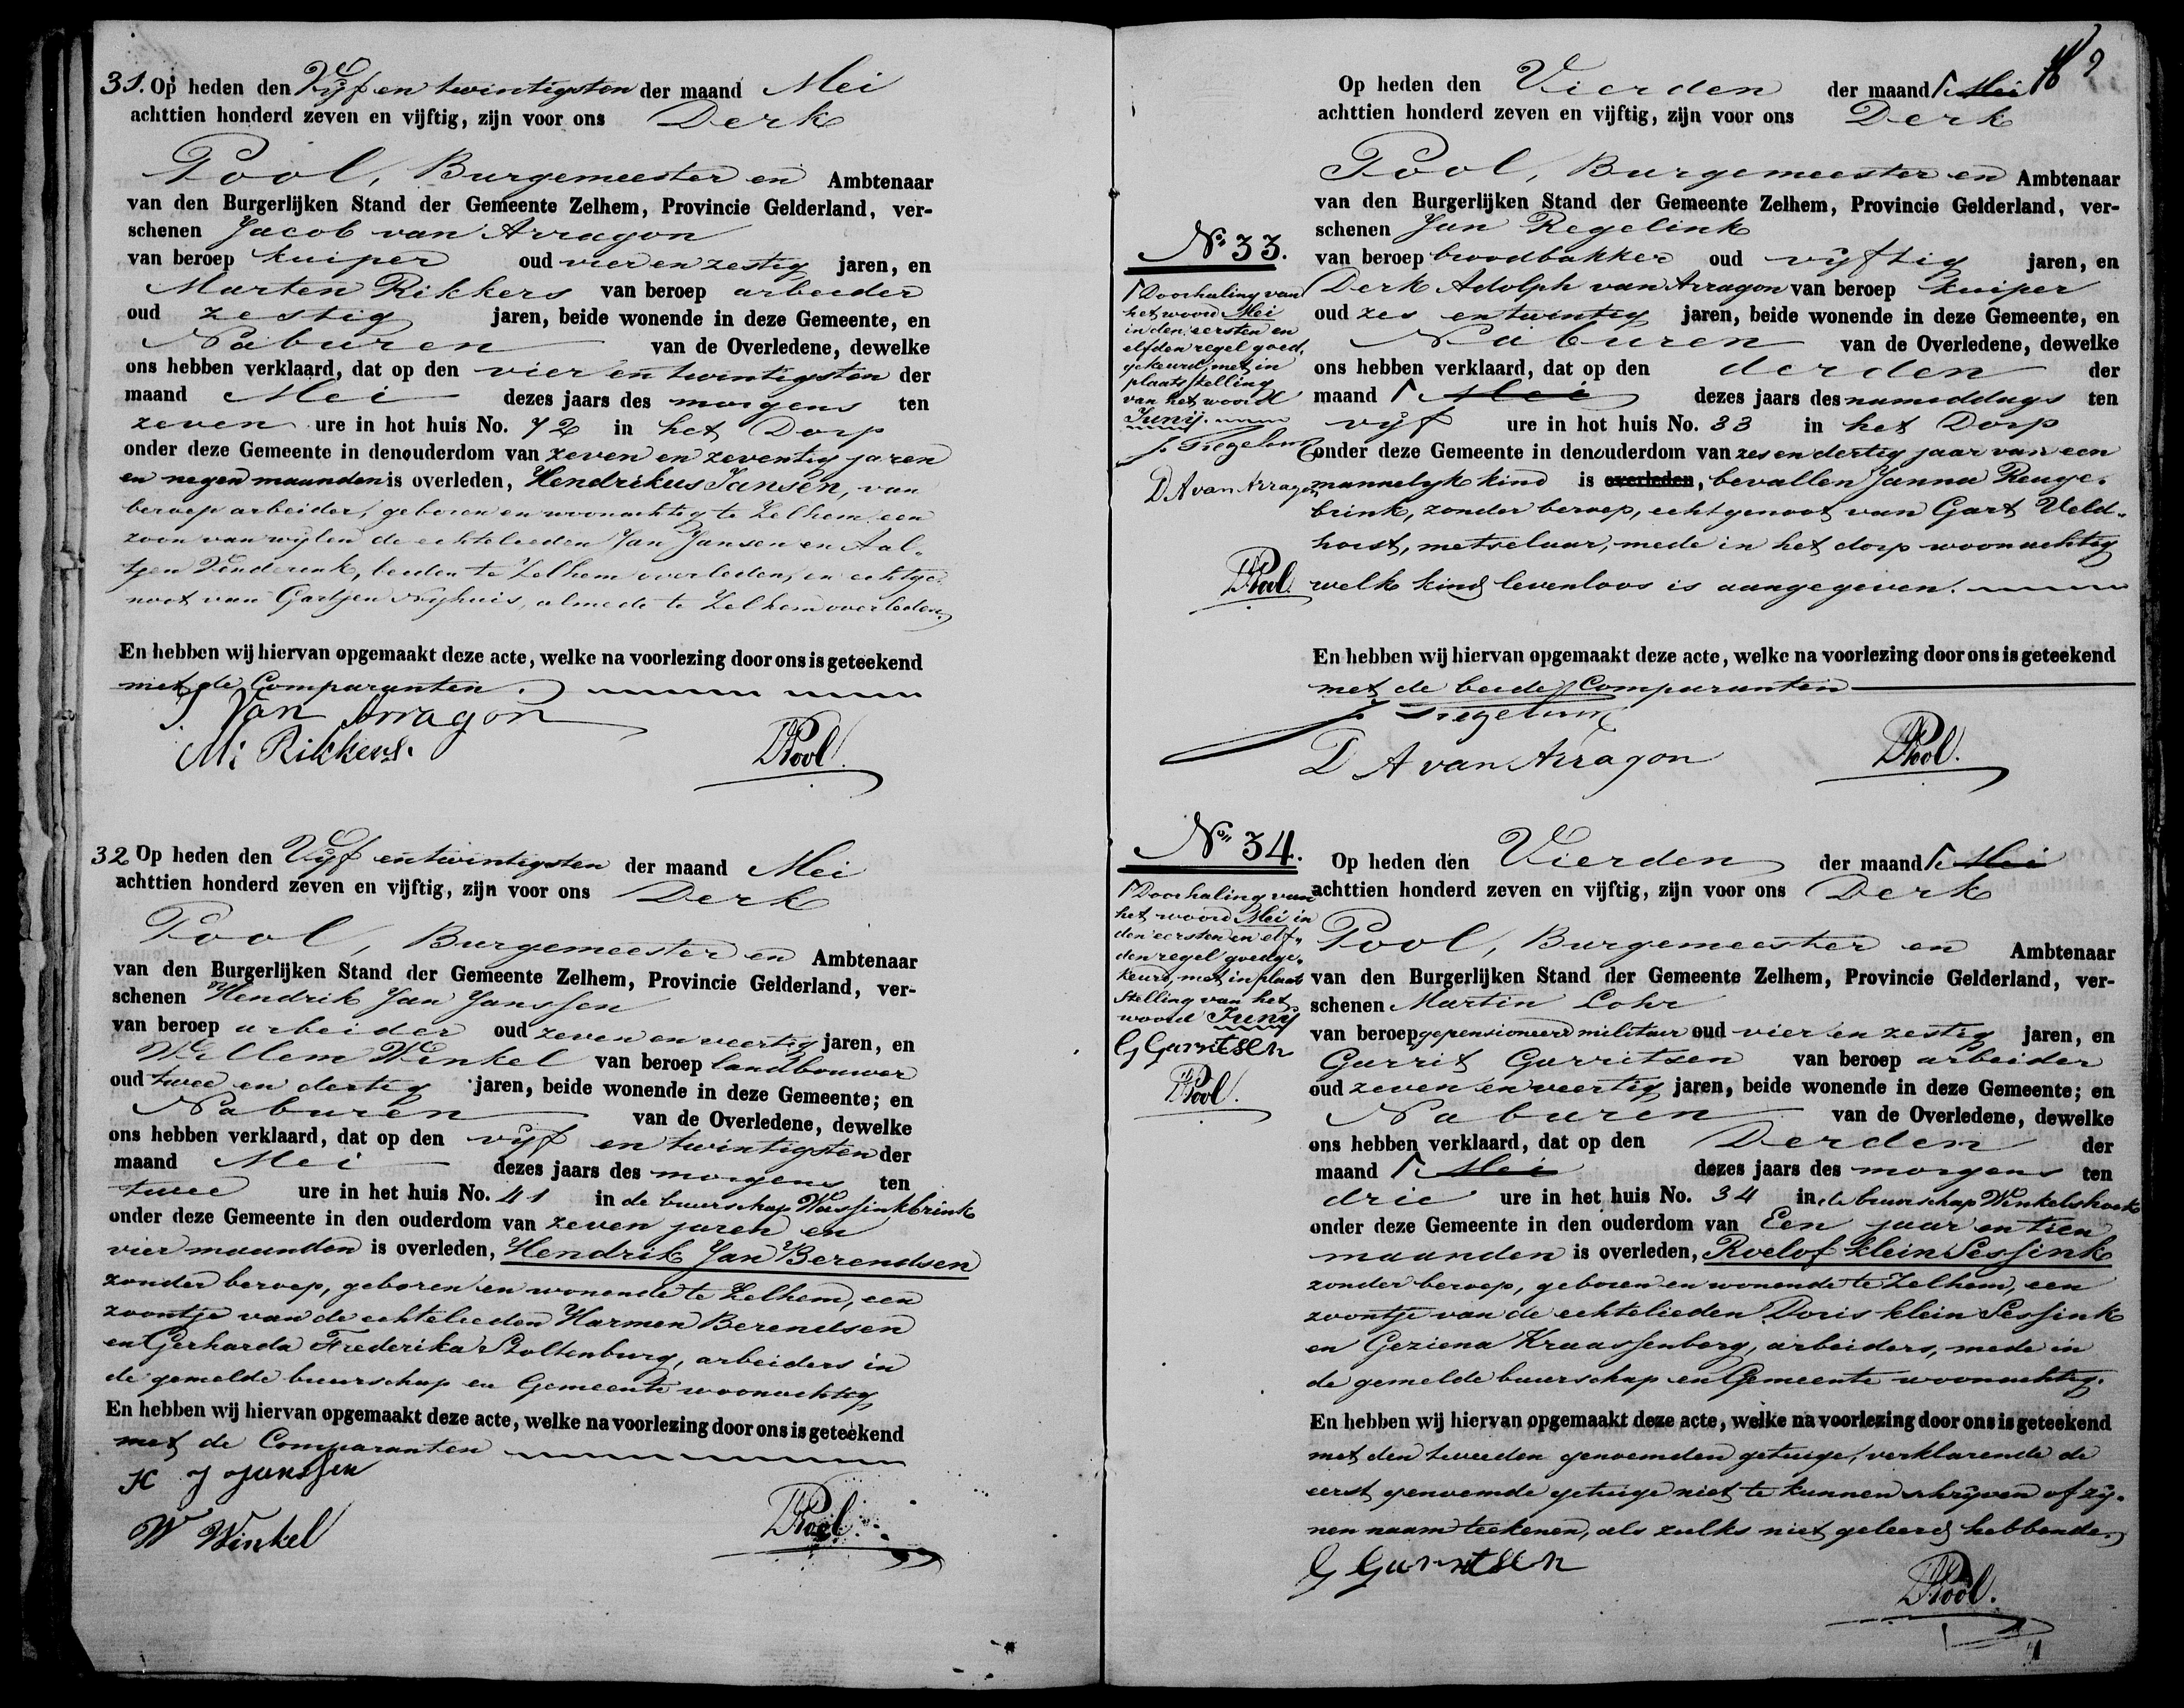 31. Op heden den Vijf en twintigsten der maand Mei
achttien honderd zeven en vijftig, zijn voor ons Derk
Pool, Burgemeester en Ambtenaar
van den Burgerlijken Stand der Gemeente Zelhem, Provincie Gelderland, ver-
schenen Jacob van Arragon
van beroep kuiper oud vier en zestig jaren, en
Marten Rikkers van beroep arbeider
oud zestig jaren, beide wonende in deze Gemeente, en
Naburen van de Overledene, dewelke
ons hebben verklaard, dat op den vier en twintigsten der
maand Mei dezes jaars des morgens ten
zeven ure in hot huis No. 72 in het Dorp
onder deze Gemeente in den ouderdom van zeven en zeventig jaren
en negen maanden is overleden, Hendrikus Jansen, van
beroep arbeider, geboren en woonachtig te Zelhem, een
zoon van wijlen de echtelieden Jan Jansen en Aal-
tjen Venderink, beiden te Zelhem overleden, en echtge-
noot van Gartjen Nijhuis, almede te Zelhem overleden.
En hebben wij hiervan opgemaakt deze acte, welke na voorlezing door ons is geteekend
met de Comparanten.
J Van Arragon
M: Rikkers.
DPool.
32 Op heden den Vijf en twintigsten der maand Mei
achttien honderd zeven en vijftig, zijn voor ons Derk
Pool, Burgemeester en Ambtenaar
van den Burgerlijken Stand der Gemeente Zelhem, Provincie Gelderland, ver-
schenen Hendrik Jan Janssen
van beroep arbeider oud zeven en veertig jaren, en
Willem Winkel van beroep landbouwer
oud twee en dertig jaren, beide wonende in deze Gemeente; en
Naburen van de Overledene, dewelke
ons hebben verklaard, dat op den vijf en twintigsten der
maand Mei dezes jaars des morgens ten
twee ure in het huis No. 41 in de buurschap Wassinkbrink
onder deze Gemeente in den ouderdom van zeven jaren en
vier maanden is overleden, Hendrik Jan Berendsen
zonder beroep, geboren en wonende te Zelhem, een
zoontje van de echtelieden Harmen Berendsen
en Gerharda Frederika Stoltenburg, arbeiders in
de gemelde buurschap en Gemeente woonachtig
En hebben wij hiervan opgemaakt deze acte, welke na voorlezing door ons is geteekend
met de Comparanten
H J Janssen
W Winkel
DPool.
Op heden den Vierden der maand Mei
achttien honderd zeven en vijftig, zijn voor ons Derk
Pool, Burgemeester en Ambtenaar
van den Burgerlijken Stand der Gemeente Zelhem, Provincie Gelderland, ver-
schenen Jan Regelink
van beroep broodbakker oud vijftig jaren, en
Derk Adolph van Arragon van beroep kuiper
oud zes en twintig jaren, beide wonende in deze Gemeente, en
Naburen van de Overledene, dewelke
ons hebben verklaard, dat op den derden der
maand Mei dezes jaars des namiddags ten
vijf ure in hot huis No. 33 in het Dorp
onder deze Gemeente in den ouderdom van zes en dertig jaar van een
mannelyk kind is overleden, bevallen Janna Reuge-
brink, zonder beroep, echtgenoot van Gart Veld-
horst, metselaar, mede in het dorp woonachtig
welk kind levenloos is aangegeven.
En hebben wij hiervan opgemaakt deze acte, welke na voorlezing door ons is geteekend
met de beide Comparanten
D A van Arragon
DPool.
No. 33.
Doorhaling van
het woord Mei
in den eersten en
elfden regel goed-
gekeurd, met in
plaatsstelling
van het woord
Junij.
D A van Arragon
DPool.
No. 34.
Doorhaling van
het woord Mei in
den eersten en elf-
den regel goedge-
keurd, met in plaat
stelling van het
woord Junij
G Garritsen
DPool.
Op heden den Vierden der maand Mei
achttien honderd zeven en vijftig, zijn voor ons Derk
Pool, Burgemeester en Ambtenaar
van den Burgerlijken Stand der Gemeente Zelhem, Provincie Gelderland, ver-
schenen Martin Lohr
van beroep gepensioneerd militair oud vier en zestig jaren, en
Garrit Garritsen van beroep arbeider
oud zeven en veertig jaren, beide wonende in deze Gemeente; en
Naburen van de Overledene, dewelke
ons hebben verklaard, dat op den Derden der
maand Mei dezes jaars des morgens ten
drie ure in het huis No. 34 in de buurschap Winkelshoek
onder deze Gemeente in den ouderdom van Een jaar en tien
maanden is overleden, Roelof klein Lessink
zonder beroep, geboren en wonende te Zelhem, een
zoontje van de echtelieden Doris klein Lessink
en Geziena Kraassenberg, arbeiders, mede in
de gemelde buurschap en Gemeente woonachtig.
En hebben wij hiervan opgemaakt deze acte, welke na voorlezing door ons is geteekend
met den tweeden genoemden getuige, verklarende de
eerst genoemde getuige niet te kunnen schrijven of zij-
nen naam teekenen, als zulks niet geleerd hebbende.
G Garritsen
DPool.